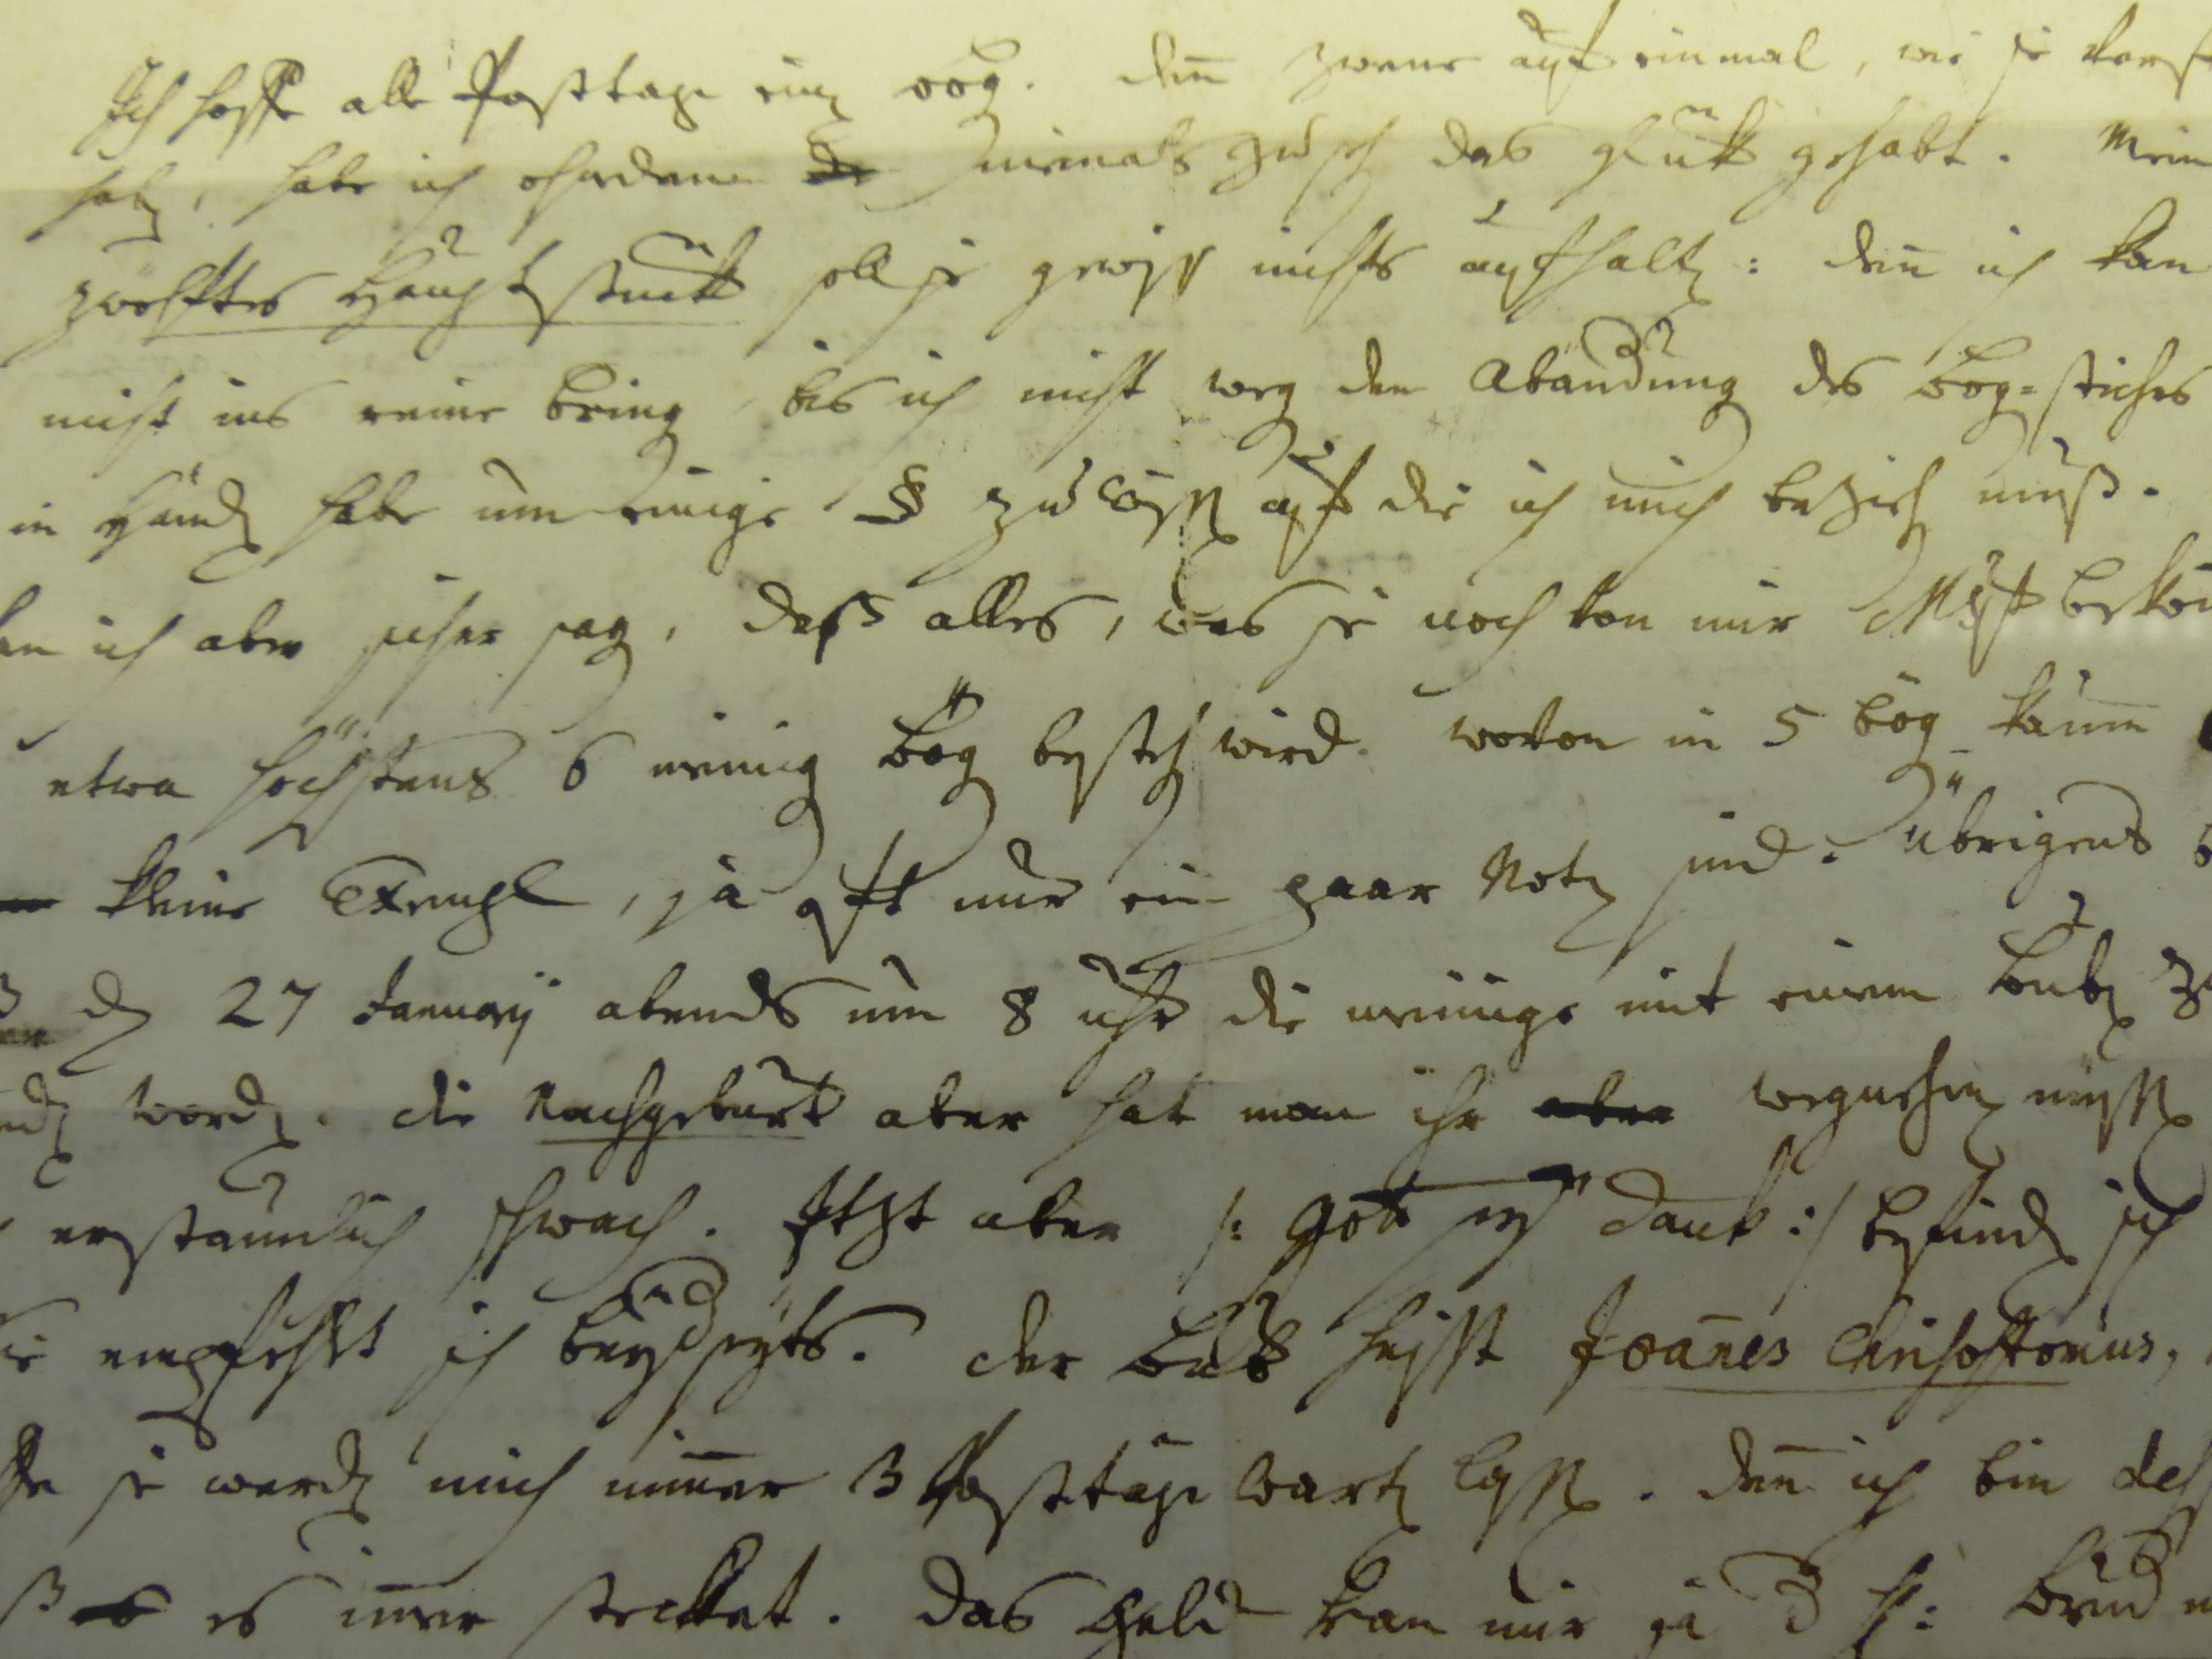 Ich hoffe alle Posttage einen bog. denn zweene auf einmal, wie sie
haben, habe ich ohnedem niemals zusehen das glück gehabt. Mein
zwölftes Hauptstück soll sie gewiß nichts aufhalten: denn ich kan
nicht ins reine bringen bis ich nicht wegen der Abänderung des Bogen=striches
in Händen habe um einige § zu lesen auf die ich mich beziehen muß.
ich aber sicher sagen, daß alles, was sie noch von mir
etwa höchstens 6 meinige Bögen bestehen wird. wovon in 5 bögen kaum
kleine Exempl, ja oft nur ein paar Noten sind. übrigens
den 27 Januarij abends um 8 uhr die meinige mit einem Buben
worden. die Nachgeburt aber hat man ihr wegnehmen müssen
erstaunlich schwach. Itzt aber /: gott sey dank :/ befinden sich
empfehlt sich beyderseyts. der Bub heißt Joannes Chrisostomus,
sie werden mich nimmer 3 Posttäge warten lassen. denn ich bin
es immer stecket. das geld kan mir ja d H: Bruder